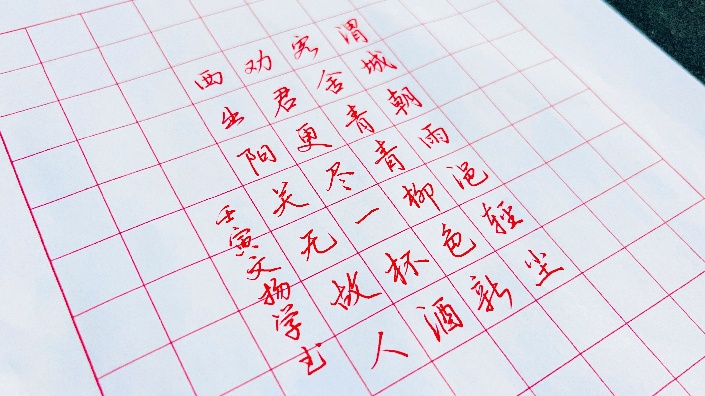 渭城朝雨浥輕尘
客舍青青柳色新
劝君更尽一杯酒
西出阳关无故人
壬寅文扬学书